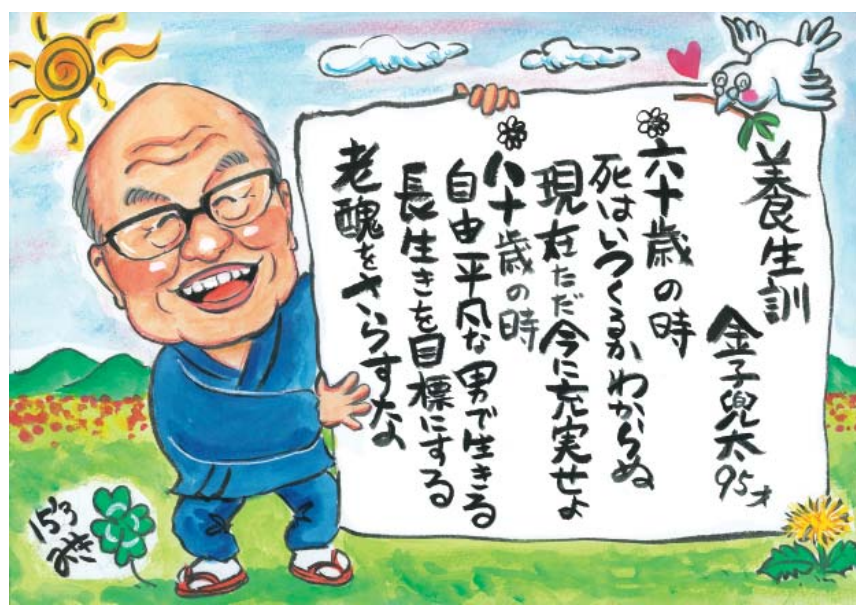 養生訓
金子兜太95才
六十歳の時
死はいつくるかわからぬ
現在ただ今に充実せよ
八十歳の時
自由平凡な男で生きる
長生きを目標にする
老醜をさらすなよ
15'3
みき